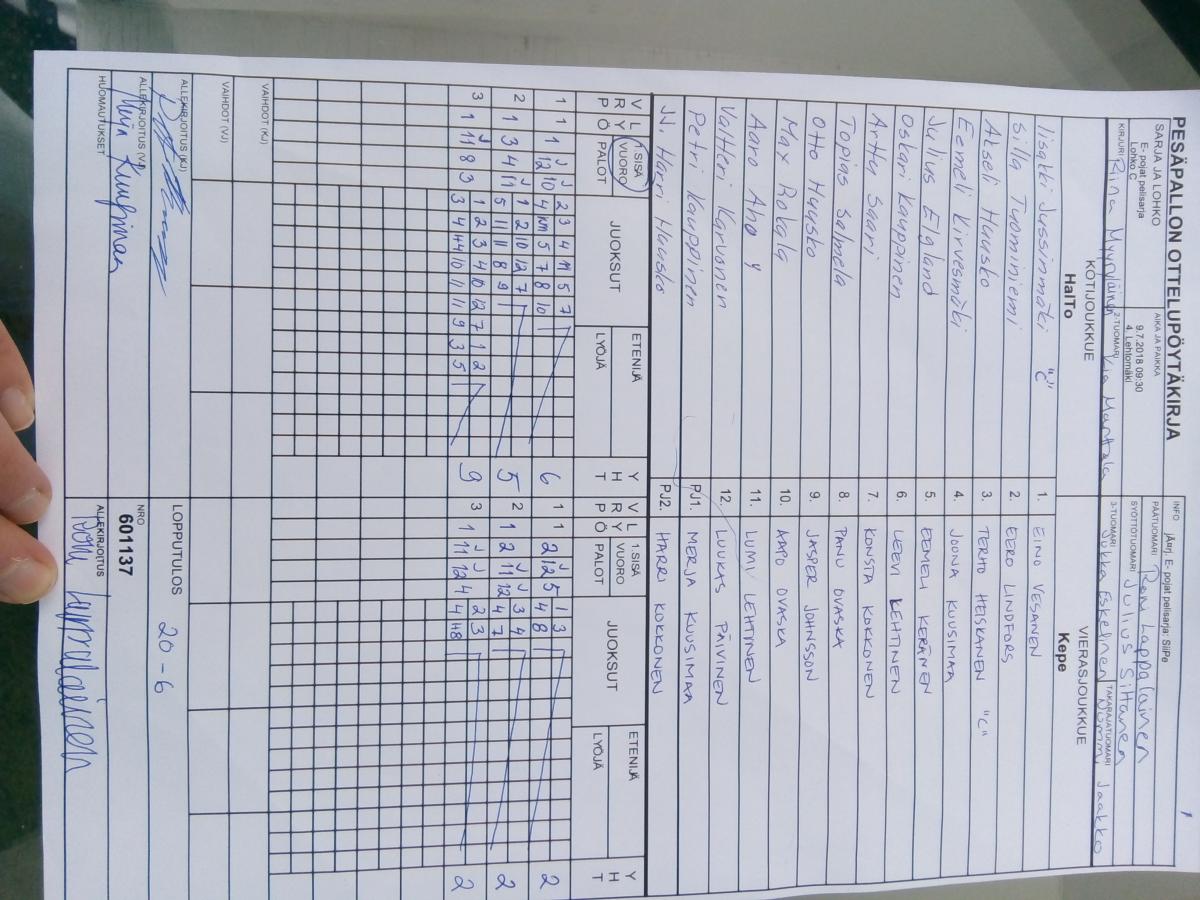 PESÄPALLON OTTELUPÖYTÄKIRJA
1
SARJA JA LOHKO
E- pojat pelisarja
Lohko C
AIKA JA PAIKKA
9.7.2018 09:30
4. Lehtomäki
INFO
E- pojat pelisarja: SiiPe
PÄÄTUOMARI Roni Lappalainen
SYÖTTÖTUOMARI Julius Siltanen
KIRJURI Riina Myyryläinen
2-TUOMARI Kia Manttala
3-TUOMARI Jukka Eskelinen
TAKARAJATUOMARI Nommi Jaakko
KOTIJOUKKUE
HalTo
VIERASJOUKKUE
Kepe
Iisakki Jussinmäki "C" 1. EINO VESANEN
Silla Tuominiemi 2. EERO LINDFORS
Akseli Huusko 3. TERHO HEISKANEN "C"
Eemeli Kirvesmäki 4. JOONA KUUSIMAA
Julius Elgland 5. EEMELI KERÄNEN
Oskari Kauppinen 6. LEEVI LEHTINEN
Arttu Saari 7. KONSTA KOKKONEN
Topias Salmela 8. PANU OVASKA
Otto Huusko 9. JASPER JOHNSSON
Max Rokala 10. AAPO OVASKA
Aaro Aho 11. LUMI LEHTINEN
Valtteri Karvonen 12. LUUKAS PÄIVINEN
Petri Kauppinen PJ1. MERJA KUUSIMAA
Harri Huusko PJ2. HARRI KOKKONEN
V R P L Y Ö 1.SISÄ VUORO PALOT JUOKSUT ETENIJÄ LYÖJÄ Y H T V R P L Y Ö 1.SISÄ VUORO PALOT JUOKSUT ETENIJÄ LYÖJÄ Y H T
2 3 4 11 5 7 1 3
1 1 1 12 10 4 5 7 8 10 6 1 1 2 12 5 4 8 2
1 2 10 12 7 3 4
2 1 3 4 11 5 11 11 8 9 5 2 1 2 11 12 4 7 2
1 2 3 4 10 12 7 1 2 2 3
3 1 11 8 3 3 4 10 11 11 9 3 5 9 3 1 11 12 4 4 2
VAIHDOT (KJ)
VAIHDOT (VJ)
ALLEKIRJOITUS (KJ)
LOPPUTULOS 20 - 6
ALLEKIRJOITUS (VJ)
NRO
601137
HUOMAUTUKSET
ALLEKIRJOITUS